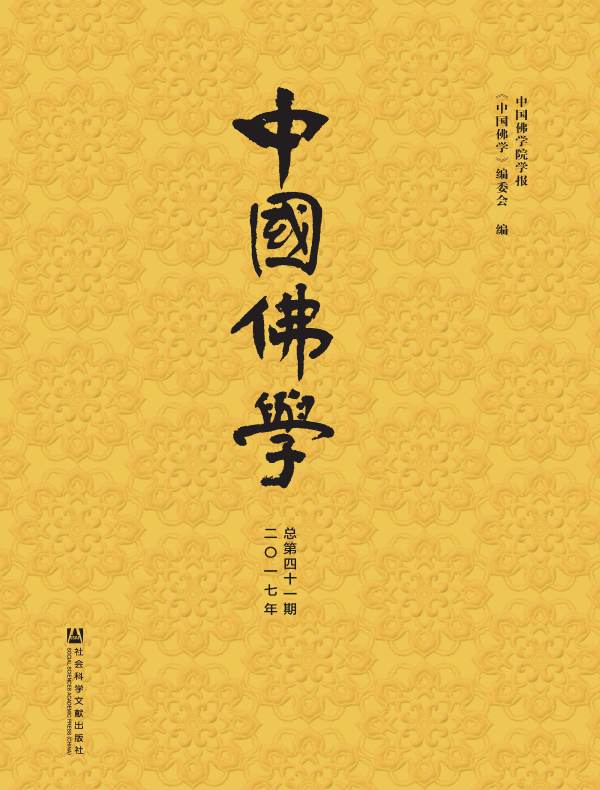 中国佛学院学报
《中国佛学》编委会 编
中國佛學
总第四十一期
二〇一七年
社会科学文献出版社
SOCIAL SCIENCES ACADEMIC PRESS (CHINA)